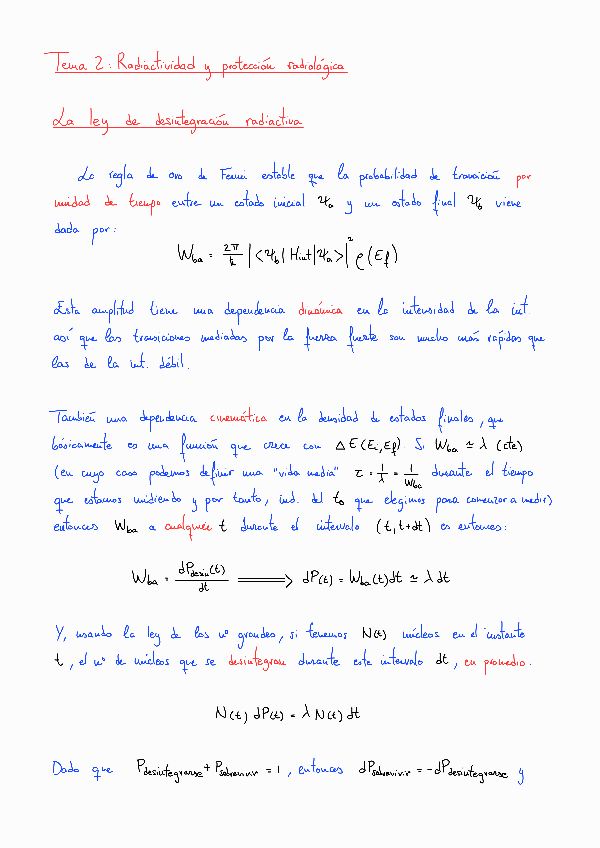 Tema 2: Radiactividad y protección radiológica
La ley de desintegración radiactiva
La regla de oro de Fermi estable que la probabilidad de transición por
unidad de tiempo entre un estado inicial Ψa y un estado final Ψb viene
dada por:
Wba = 2π/ħ |<Ψb| Hint |Ψa>|² ρ(Ef)
Esta amplitud tiene una dependencia dinámica en la intensidad de la int.
así que las transiciones mediadas por la fuerza fuerte son mucho más rápidas que
las de la int. débil.
También una dependencia cinemática en la densidad de estados finales, que
básicamente es una función que crece con ΔE(Ei,Ef) Si Wba ≃ λ (cte)
(en cuyo caso podemos definir una "vida media" τ = 1/λ = 1/Wba durante el tiempo
que estamos midiendo y por tanto, ind. del t₀ que elegimos para comenzar a medir)
entonces Wba a cualquier t durante el intervalo (t, t+dt) es entonces:
Wba = dPdesin(t)/dt ⟹ dP(t) = Wba(t)dt ≃ λ dt
Y, usando la ley de los nº grandes, si tenemos N(t) núcleos en el instante
t, el nº de núcleos que se desintegran durante este intervalo dt, en promedio.
N(t) dP(t) = λ N(t) dt
Dado que Pdesintegrarse + Psobrevivir = 1, entonces dPsobrevivir = -dPdesintegrarse y